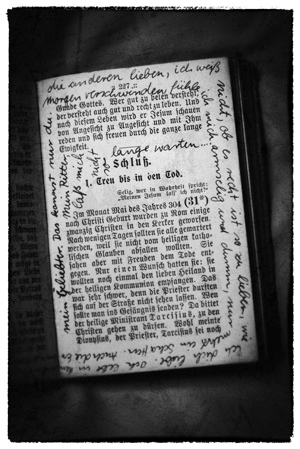 die anderen lieben, ich waß
morgen verschwinden
— 227. —
Gnade Gottes. Wer gut zu beten versteht,
der versteht auch gut und recht zu leben. Und
nach diesem Leben wird er Jesum schauen
von Angesicht zu Angesicht und mit Ihm
reden und sich freuen durch die ganze lange
Ewigkeit.
lange warten...
Schluß.
1. Treu bis in den Tod.
Selig, wer in Wahrheit spricht:
„Meinen Jesum laß ich nicht!"
Im Monat Mai des Jahres 304 (31*)
nach Christi Geburt wurden zu Rom einige
zwanzig Christen in den Kerker geworfen.
Nach wenigen Tagen sollten sie alle gemartert
werden, weil sie nicht dem heiligen katho-
lischen Glauben abfallen wollten. Sie
sahen aber mit Freuden dem Tode ent-
gegen. Nur einen Wunsch hatten sie: sie
wollten noch einmal den lieben Heiland in
der heiligen Kommunion empfangen. Das
war sehr schwer, denn die Priester durften
sich auf der Straße nicht sehen lassen. Wer
sollte nun ins Gefängnis senden? Da bittet
der heilige Ministrant Tarcisius, zu den
Christen gehen zu dürfen. Wohl meinte
Dionysius, der Priester, Tarcisius sei noch
mein Geliebter. Das kannst nur du.
Mein Retter,
laß mich
nicht
nicht, ob es recht ist so zu lieben, wie
ich dich liebe.